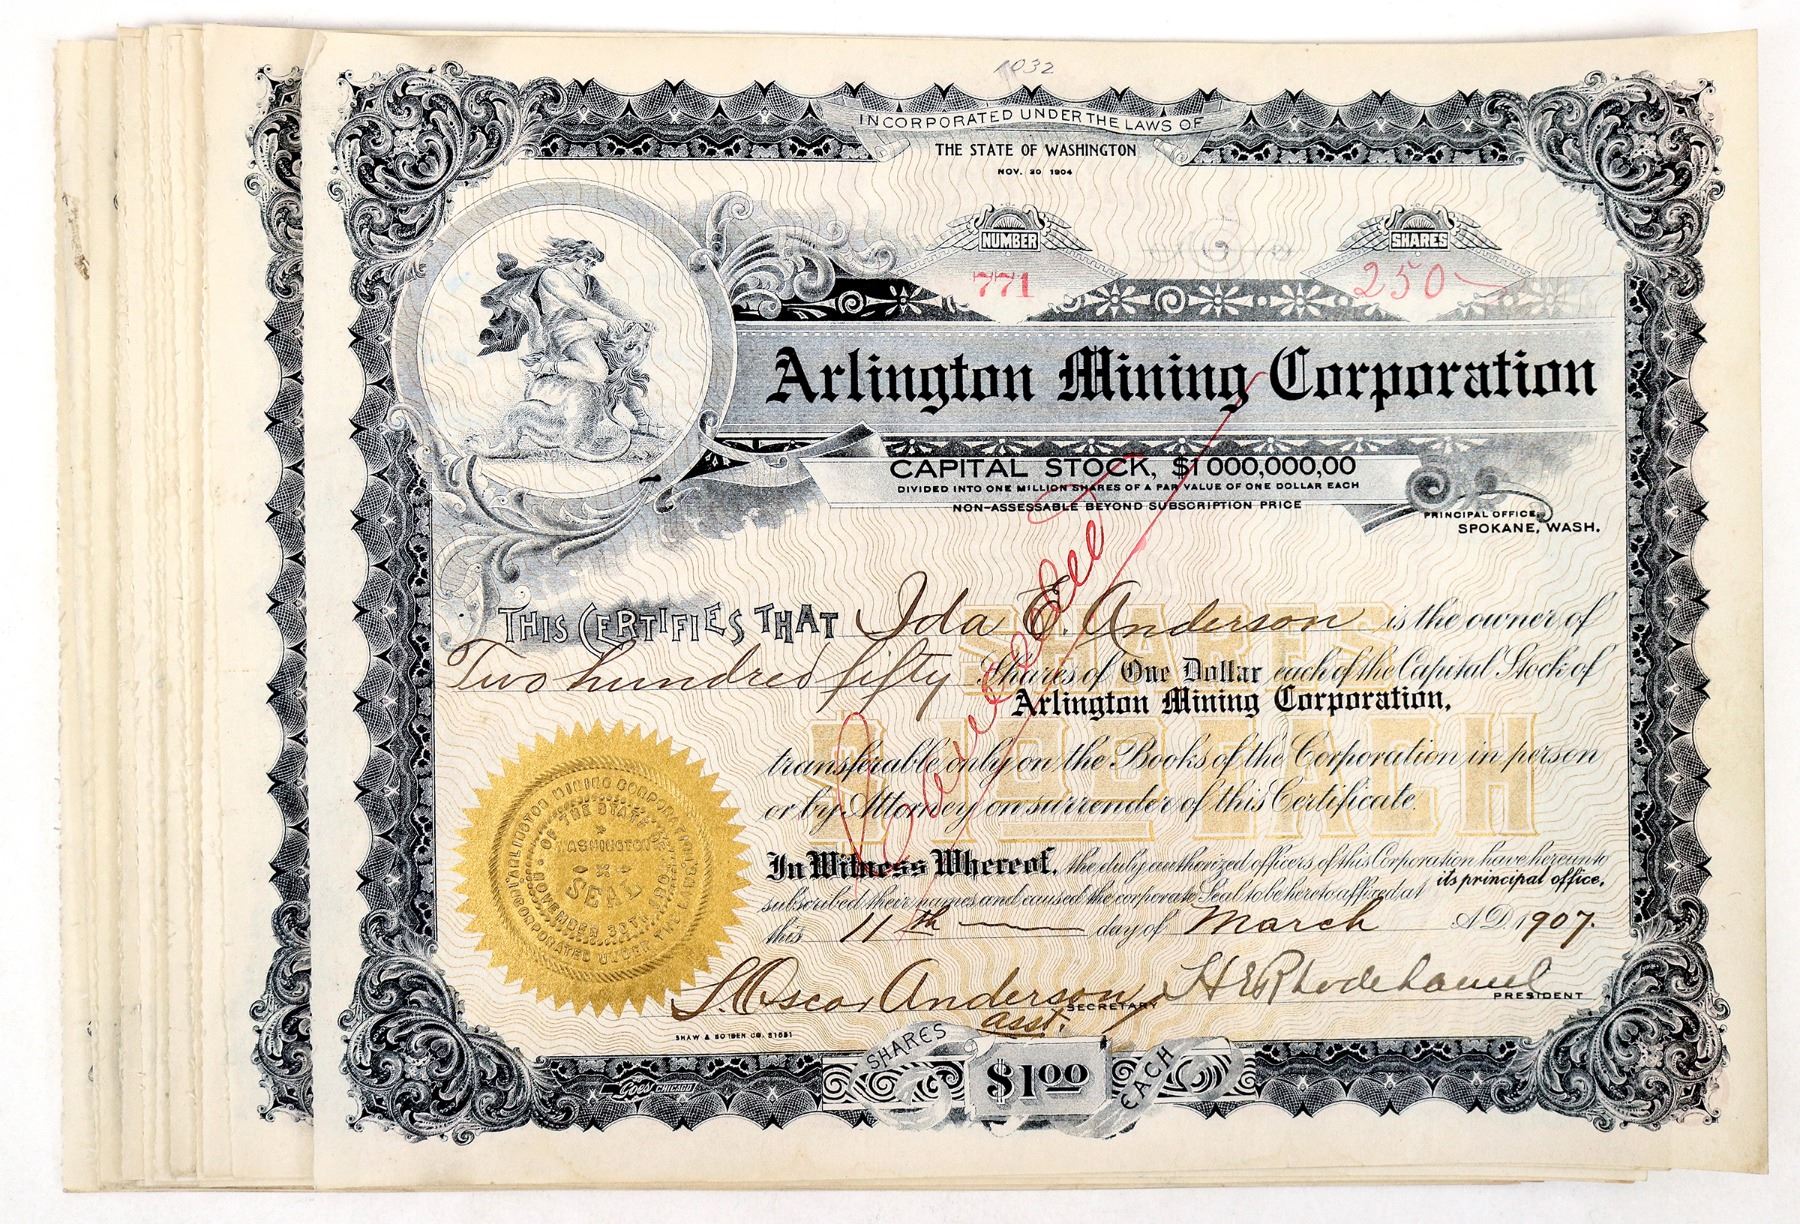 1032
INCORPORATED UNDER THE LAWS OF
THE STATE OF WASHINGTON
NOV. 30 1904
NUMBER
771
SHARES
250
Arlington Mining Corporation
CAPITAL STOCK, $1 000,000,00
DIVIDED INTO ONE MILLION SHARES OF A PAR VALUE OF ONE DOLLAR EACH
NON-ASSESSABLE BEYOND SUBSCRIPTION PRICE
PRINCIPAL OFFICE,
SPOKANE, WASH.
THIS CERTIFIES THAT Ida E. Anderson is the owner of
Two hundred fifty Shares of One Dollar each of the Capital Stock of
Arlington Mining Corporation,
transferable only on the Books of the Corporation in person
or by Attorney on surrender of this Certificate.
SHARES
$1.00 EACH
In Witness Whereof, the duly authorized officers of this Corporation have hereunto
subscribed their names and caused the corporate Seal to be hereto affixed at its principal office,
this 11th day of March A.D. 1907.
L. Oscar Anderson SECRETARY
asst.
H E Rhodehamel
PRESIDENT
Cancelled
ARLINGTON MINING CORPORATION
OF THE STATE OF
WASHINGTON
SEAL
NOVEMBER 30TH
INCORPORATED UNDER THE
SHAW & BORDEN CO. 51681
Goes CHICAGO
SHARES
$1.00
EACH